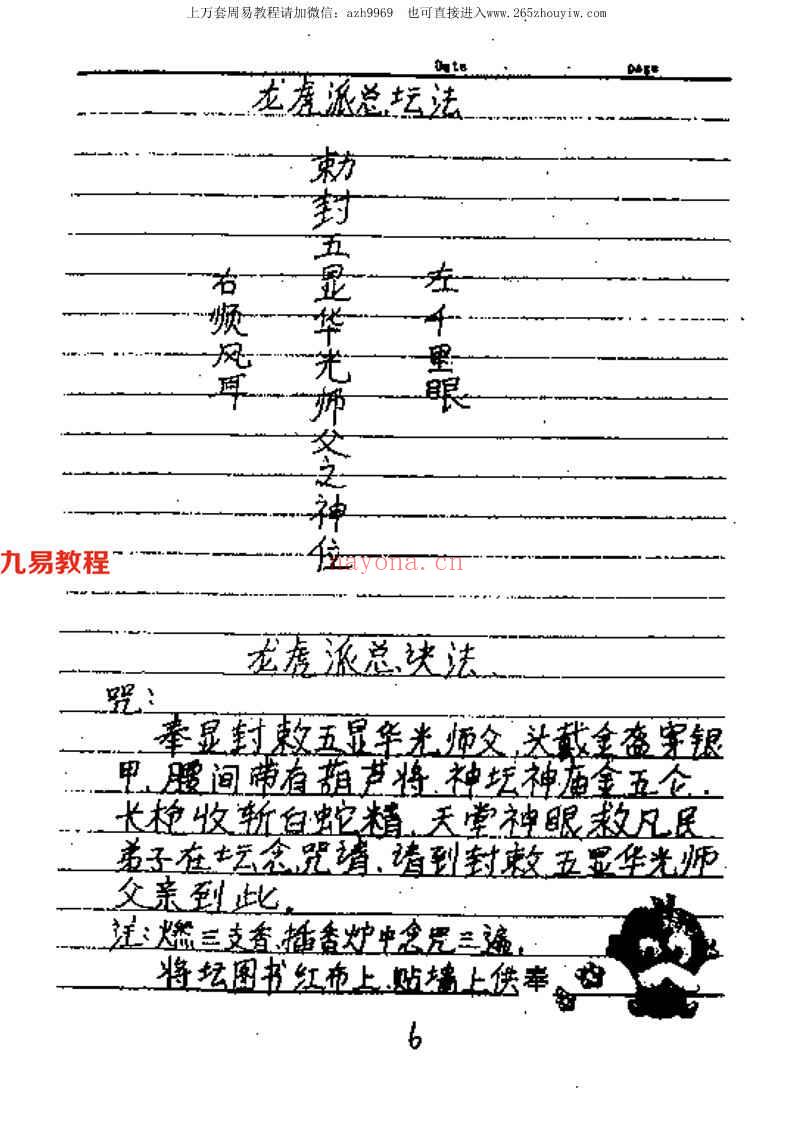 上万套周易教程请加微信：azh9969 也可直接进入www.265zhouyiw.com
Date Page
龙虎派总坛法
左千里眼
勅封五显华光师父之神位
右顺风耳
九易教程
nayona.cn
龙虎派总诀法
咒：
奉显封敕五显华光师父，头戴金盔穿银
甲、腰间带有葫芦将、神坛神庙金五仑．
长枪收斩白蛇精、天堂神眼救凡民
弟子在坛念咒请、请到封敕五显华光师
父亲到此。
注：燃三支香、插香炉中念咒三遍，
将坛图书红布上、贴墙上供奉
6